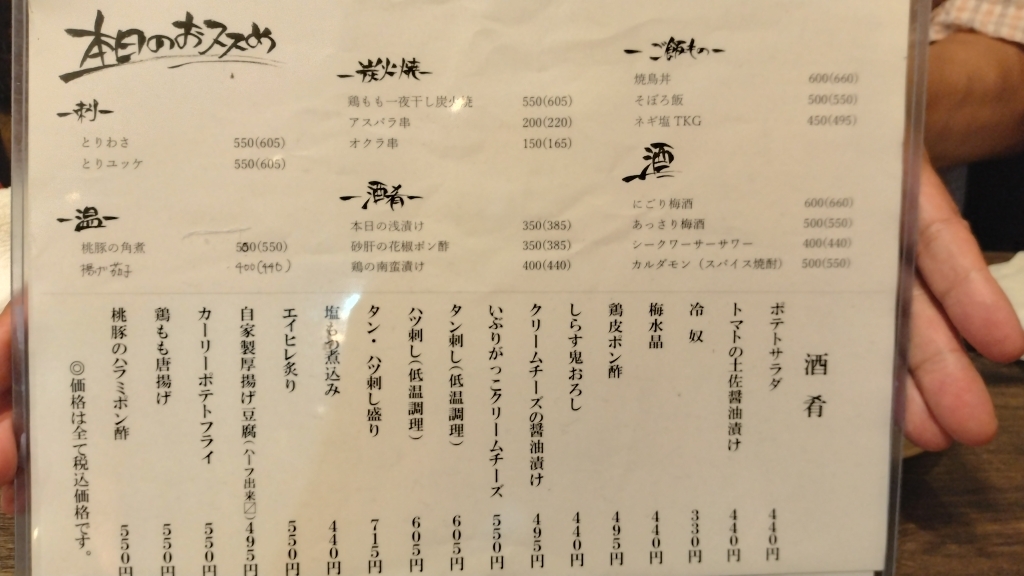 本日のおススめ
刺
とりわさ 550(605)
とりユッケ 550(605)
温
桃豚の角煮 500(550)
揚げ茄子 400(440)
炭火焼
鶏もも一夜干し炭火焼 550(605)
アスパラ串 200(220)
オクラ串 150(165)
酒肴
本日の浅漬け 350(385)
砂肝の花椒ポン酢 350(385)
鶏の南蛮漬け 400(440)
ご飯もの
焼鳥丼 600(660)
そぼろ飯 500(550)
ネギ塩 TKG 450(495)
酒
にごり梅酒 600(660)
あっさり梅酒 500(550)
シークワーサーサワー 400(440)
カルダモン（スパイス焼酎） 500(550)
酒肴
ポテトサラダ 440円
トマトの土佐醤油漬け 440円
冷奴 330円
梅水晶 440円
鶏皮ポン酢 495円
しらす鬼おろし 440円
クリームチーズの醤油漬け 495円
いぶりがっこクリームチーズ 550円
タン刺し(低温調理) 605円
ハツ刺し(低温調理) 605円
タン・ハツ刺し盛り 715円
塩もつ煮込み 440円
エイヒレ炙り 550円
自家製厚揚げ豆腐(ハーフ出来〼) 495円
カーリーポテトフライ 550円
鶏もも唐揚げ 550円
桃豚のハラミポン酢 550円
◎価格は全て税込価格です。